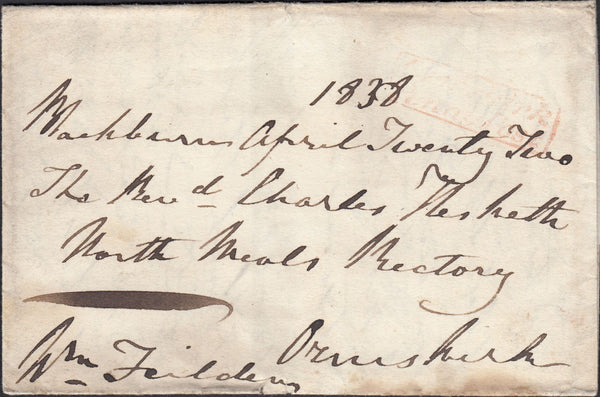 1838
Blackburn April Twenty Two
The Revd. Charles Hesketh
North Meols Rectory
Ormskirk
Wm Feilden